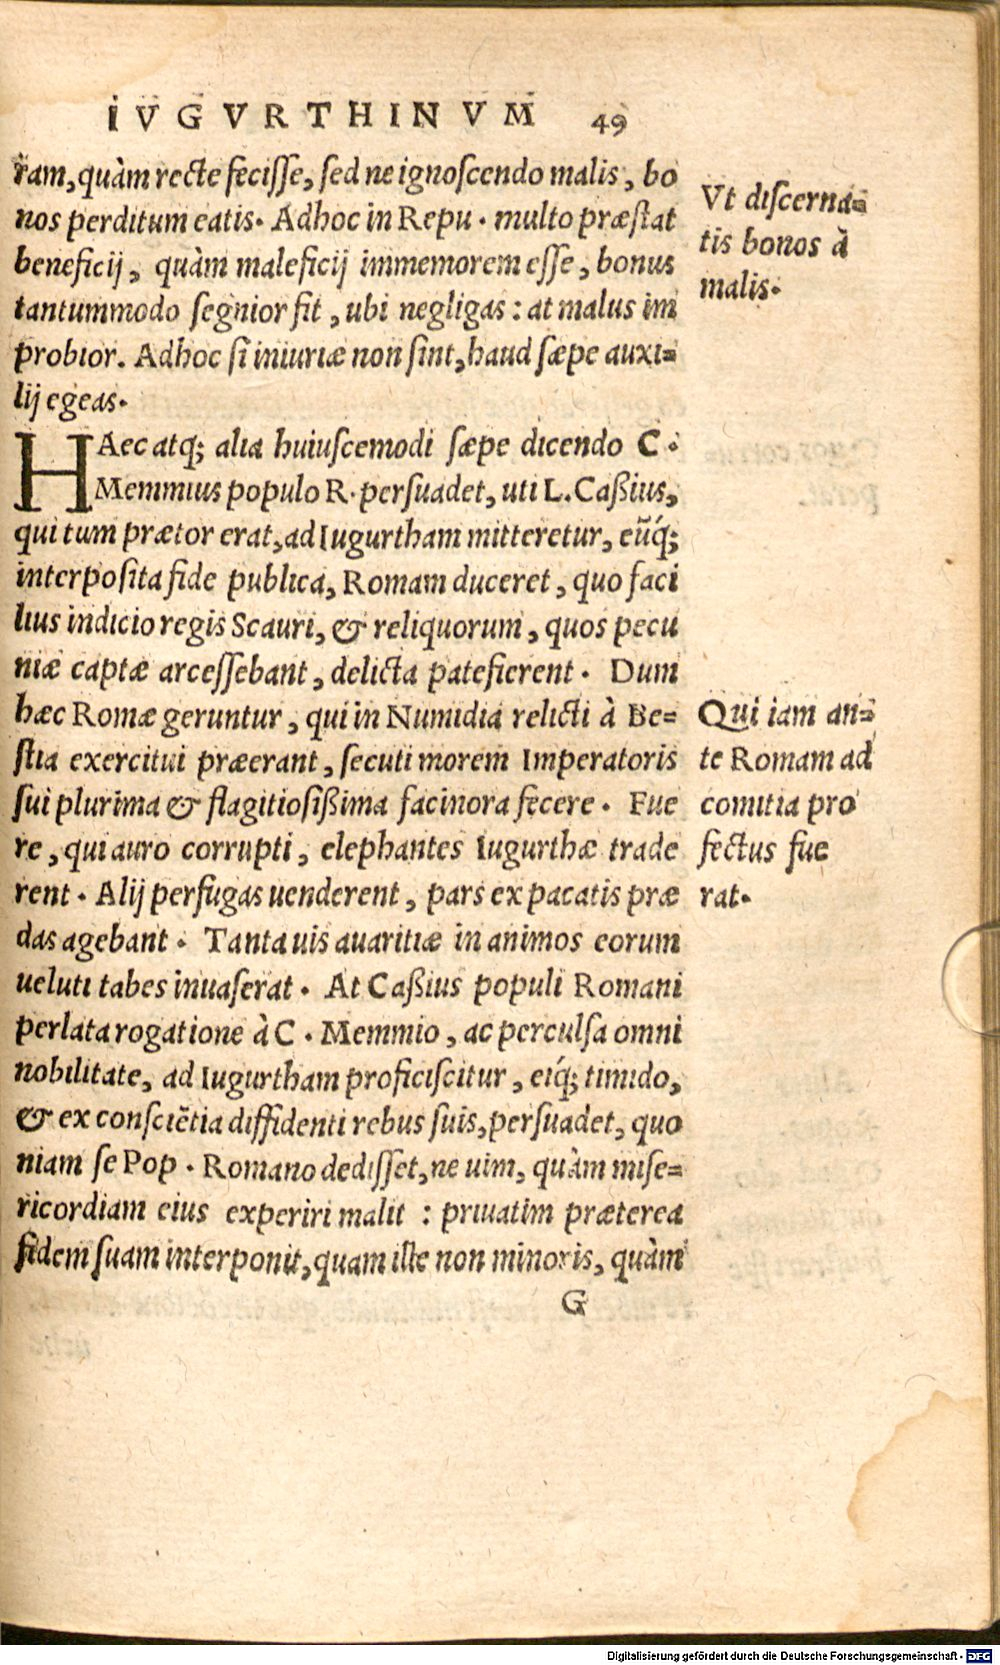 IVGVRTHINVM 49
ram, quàm recte fecisse, sed ne ignoscendo malis, bo
nos perditum eatis. Adhoc in Repu. multo præstat
beneficij, quàm maleficij immemorem esse, bonus
tantummodo segnior fit, ubi negligas: at malus im
probior. Adhoc si iniuriæ non sint, haud sæpe auxi=
lij egeas.
Vt discerna=
tis bonos à
malis.
HAec atq; alia huiuscemodi sæpe dicendo C.
Memmius populo R. persuadet, uti L. Caßius,
qui tum prætor erat, ad Iugurtham mitteretur, eũq́;
interposita fide publica, Romam duceret, quo faci
lius indicio regis Scauri, & reliquorum, quos pecu
niæ captæ arcessebant, delicta patefierent. Dum
hæc Romæ geruntur, qui in Numidia relicti à Be=
stia exercitui præerant, secuti morem Imperatoris
sui plurima & flagitiosißima facinora fecere. Fue
re, qui auro corrupti, elephantes Iugurthæ trade
rent. Alij perfugas uenderent, pars ex pacatis præ
das agebant. Tanta uis auaritiæ in animos eorum
ueluti tabes inuaserat. At Caßius populi Romani
perlata rogatione à C. Memmio, ac perculsa omni
nobilitate, ad Iugurtham proficiscitur, eiq́; timido,
& ex consciẽtia diffidenti rebus suis, persuadet, quo
niam se Pop. Romano dedisset, ne uim, quàm mise=
ricordiam eius experiri malit: priuatim præterea
fidem suam interponit, quam ille non minoris, quàm
Qui iam an=
te Romam ad
comitia pro
fectus fue
rat.
G
Digitalisierung gefördert durch die Deutsche Forschungsgemeinschaft - DFG